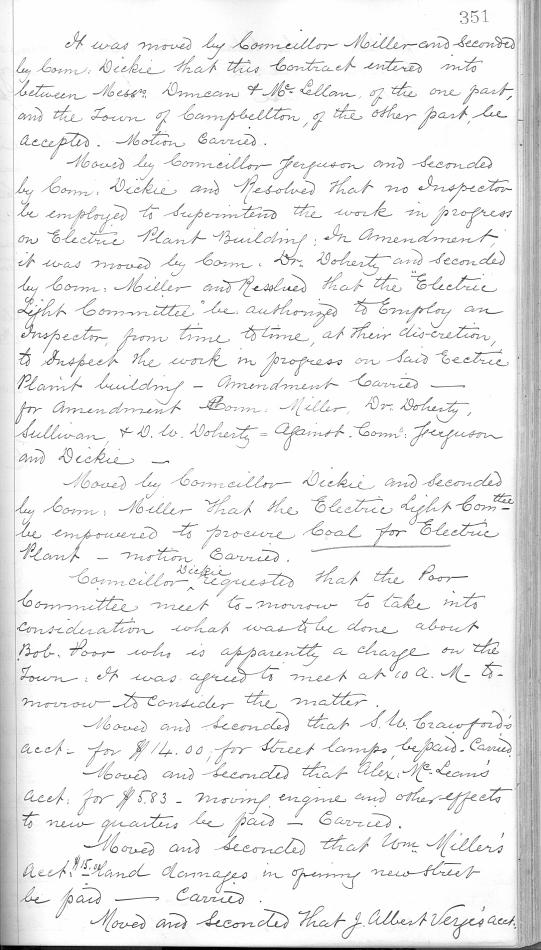 351
It was moved by Councillor Miller and Seconded
by Coun: Dickie that this Contract entered into
between Messrs. Duncan & McLellan, of the one part,
and the Town of Campbellton, of the other part, be
accepted. Motion Carried.
Moved by Councillor Ferguson and Seconded
by Coun: Dickie and Resolved that no Inspector
be employed to Superintend the work in progress
on Electric Plant Building; In Amendment,
it was moved by Coun. Dr. Doherty and seconded
by Coun: Miller and Resolved that the "Electric
Light Committee" be authorized to Employ an
Inspector, from time to time, at their discretion,
to Inspect the work in progress on Said Eectric
Plant building - Amendment Carried -
for Amendment Coun: Miller, Dr. Doherty,
Sullivan, & D. W. Doherty = Against. Couns. Ferguson
and Dickie -
Moved by Councillor Dickie and Seconded
by Coun: Miller that the Electric Light Com-ttee
be empowered to procure Coal for Electric
Plant - motion Carried.
Councillor Dickie requested that the Poor
Committee meet to-morrow to take into
consideration what was to be done about
Bob. Poor who is apparently a charge on the
Town: It was agreed to meet at 10 A. M. to-
morrow to consider the matter.
Moved and Seconded that S. W. Crawford's
acct - for $14.00, for Street lamps, be paid - Carried.
Moved and Seconded that Alex. McLean's
acct. for $5.83 - moving engine and other effects
to new quarters be paid - Carried.
Moved and Seconded that Wm Miller's
acct. $15.00 land damages in opening new Street
be paid - Carried.
Moved and Seconded that J. Albert Verge's acct.